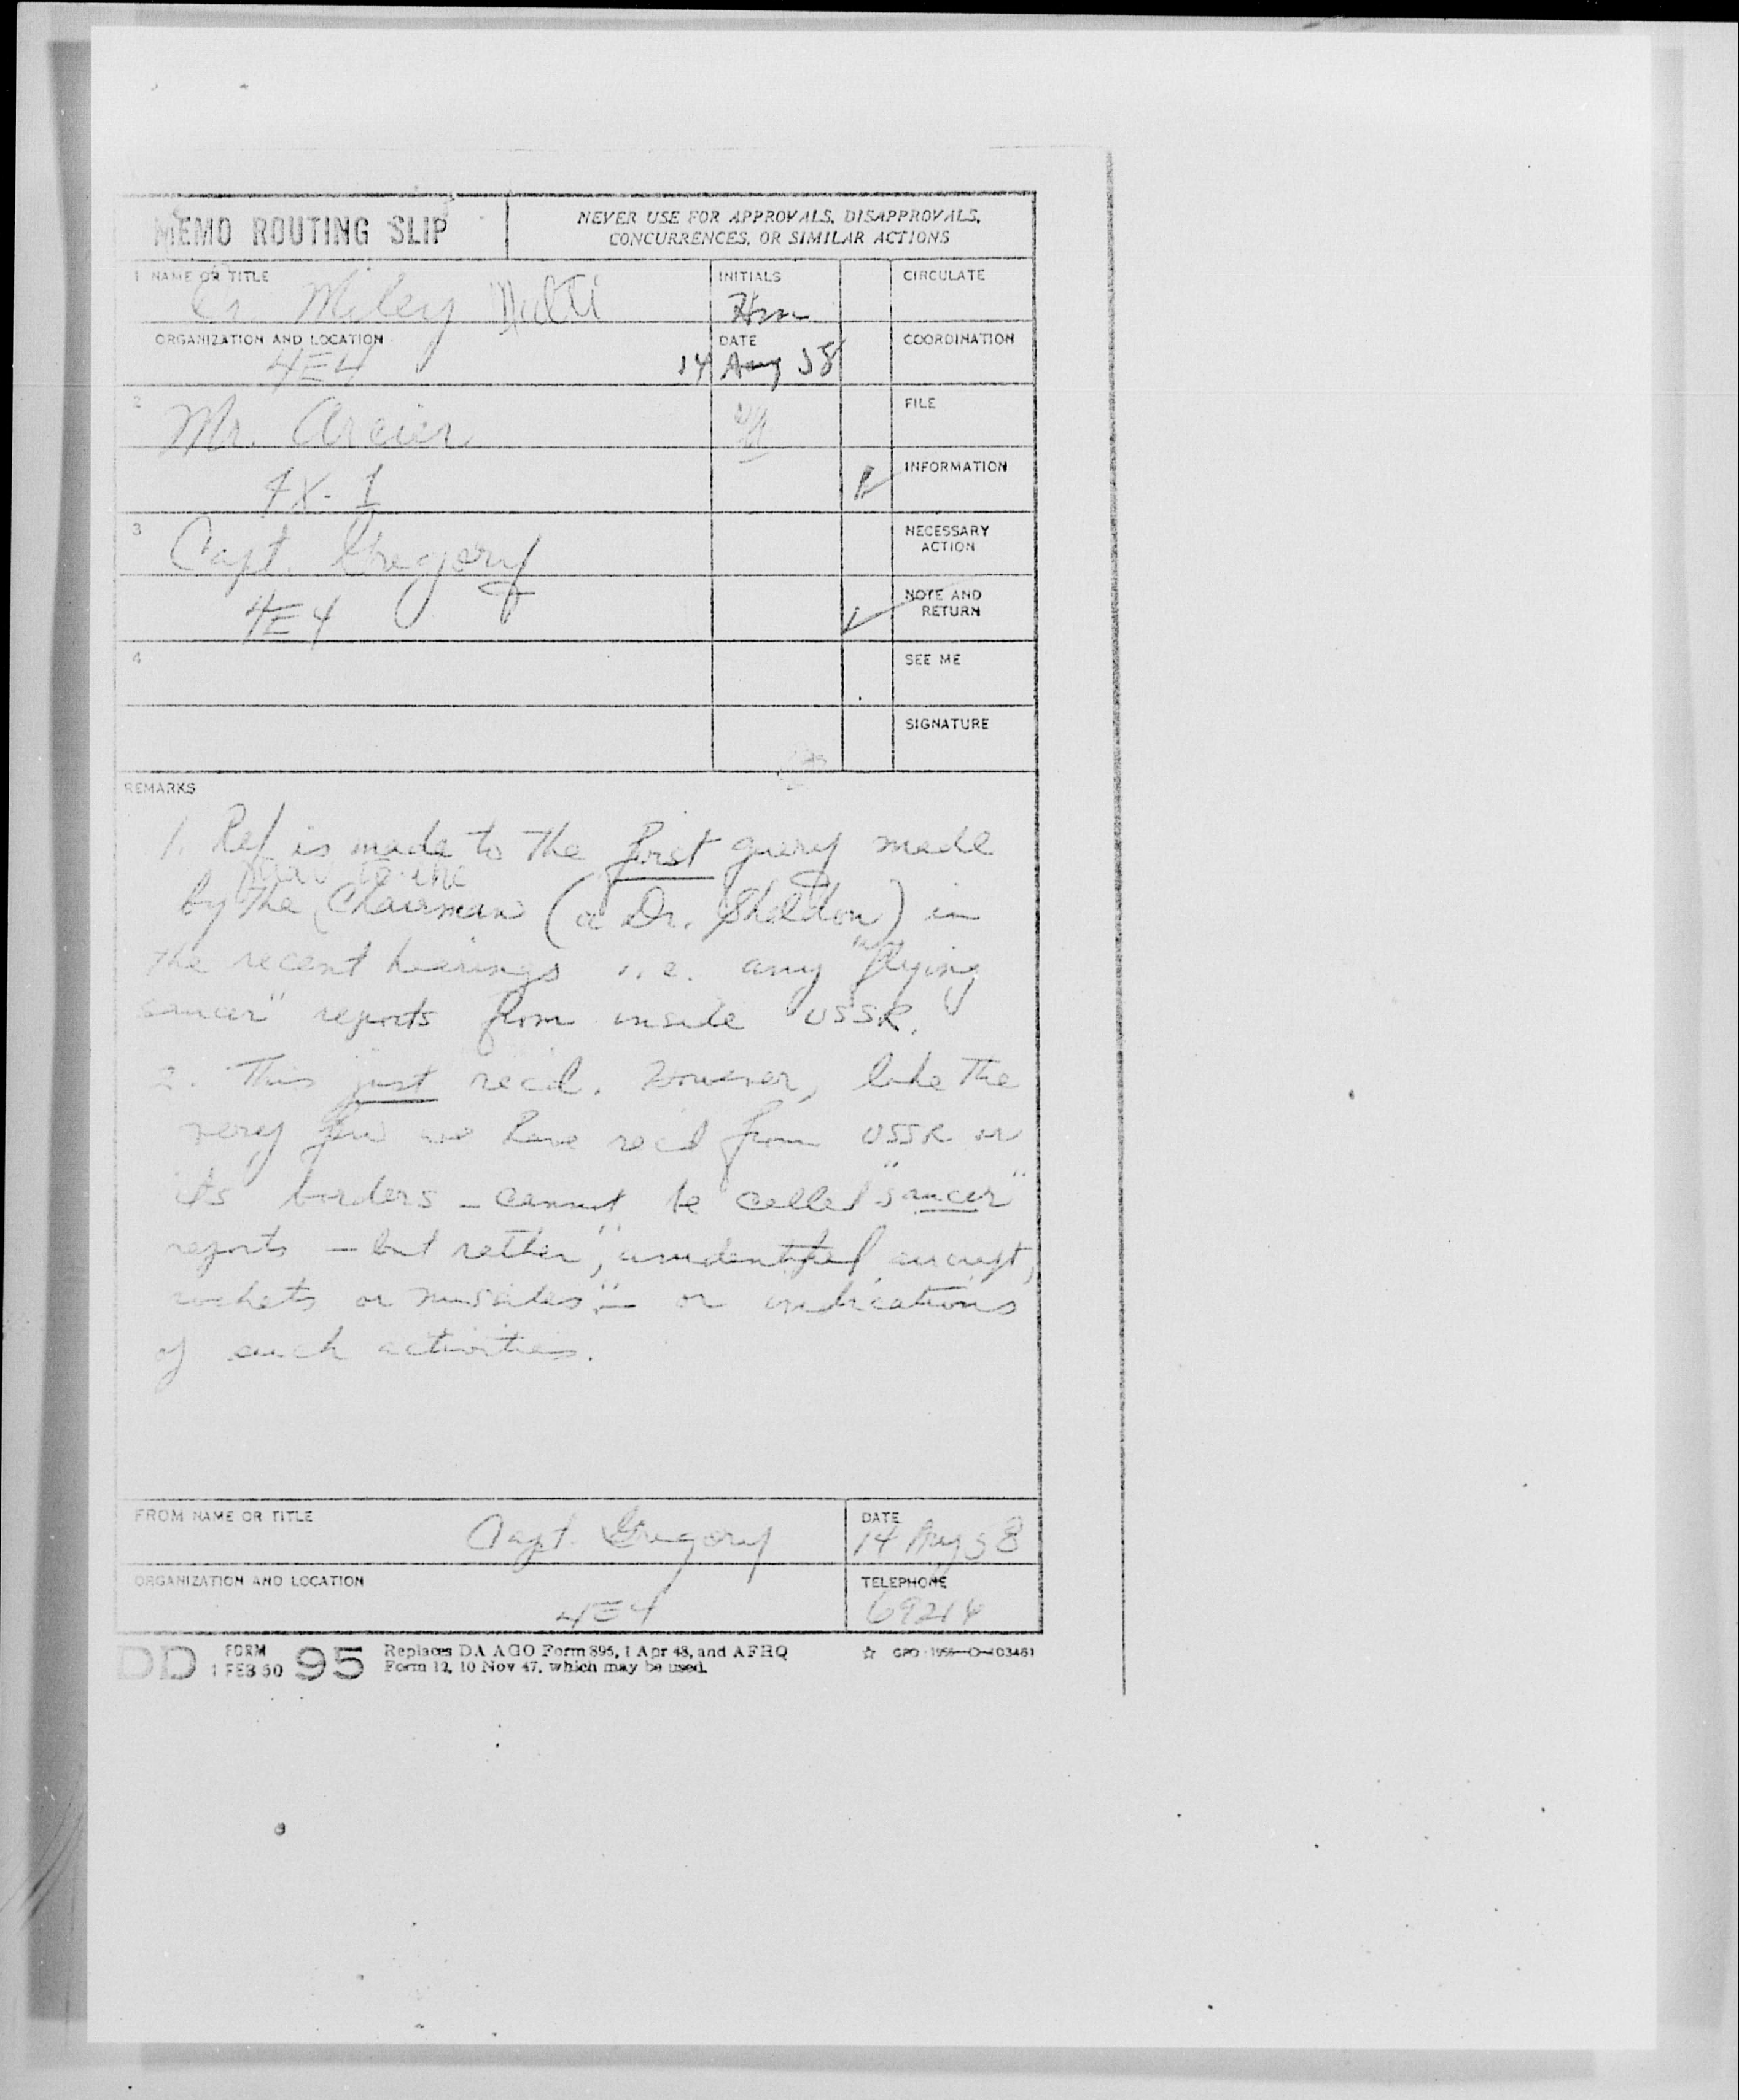 MEMO ROUTING SLIP
NEVER USE FOR APPROVALS, DISAPPROVALS,
CONCURRENCES, OR SIMILAR ACTIONS
1 NAME OR TITLE
Dr. Miley
INITIALS
Hm
CIRCULATE
ORGANIZATION AND LOCATION
4E4
DATE
14 Aug 58
COORDINATION
2
Mr. Arcier
FILE
4X-1
INFORMATION
3
Capt. Gregory
NECESSARY
ACTION
4E4
NOTE AND
RETURN
4
SEE ME
SIGNATURE
REMARKS
1. Ref is made to the first query made
by the Chairman (a Dr. Sheldon) in
the recent hearings i.e. any "flying
saucer" reports from inside USSR.
2. This just recd. However, like the
very few we have recd from USSR or
its borders - cannot be called "saucer"
reports - but rather, "unidentified aircraft,
rockets or missiles" - or indications
of such activities.
FROM NAME OR TITLE
Capt. Gregory
DATE
14 Aug 58
ORGANIZATION AND LOCATION
4E4
TELEPHONE
69216
DD FORM 1 FEB 50 95
Replaces DA AGO Form 895, 1 Apr 48, and AFHQ
Form 12, 10 Nov 47, which may be used.
☆ GPO-1956-O-403461